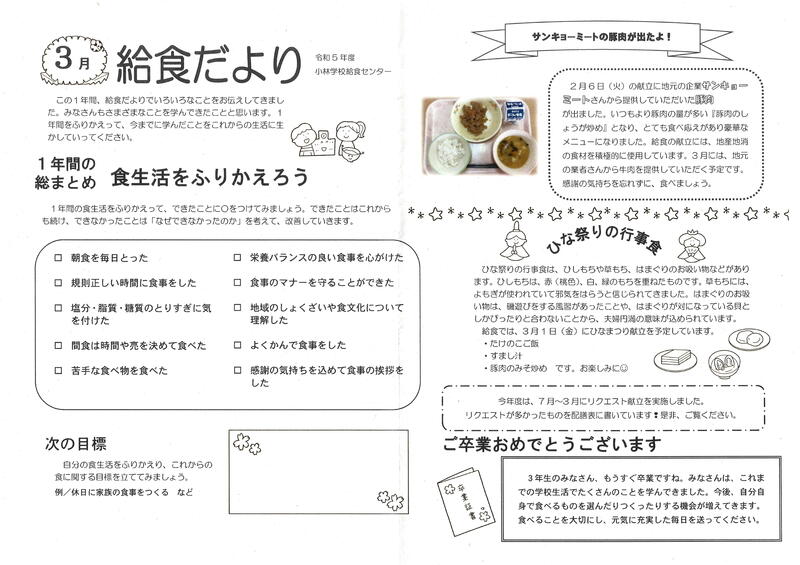 3月
給食だより
令和5年度
小林学校給食センター
この1年間、給食だよりでいろいろなことをお伝えしてきまし
た。みなさんもさまざまなことを学んできたことと思います。1
年間をふりかえって、今までに学んだことをこれからの生活に生
かしていってください。
1年間の
総まとめ
食生活をふりかえろう
1年間の食生活をふりかえって、できたことに〇をつけてみましょう。できたことはこれから
も続け、できなかったことは「なぜできなかったのか」を考えて、改善していきます。
□ 朝食を毎日とった
□ 規則正しい時間に食事をした
□ 塩分・脂質・糖質のとりすぎに気
を付けた
□ 間食は時間や売を決めて食べた
□ 苦手な食べ物を食べた
□ 栄養バランスの良い食事を心がけた
□ 食事のマナーを守ることができた
□ 地域のしょくざいや食文化について
理解した
□ よくかんで食事をした
□ 感謝の気持ちを込めて食事の挨拶を
した
次の目標
自分の食生活をふりかえり、これからの
食に関する目標を立ててみましょう。
例／休日に家族の食事をつくる など
サンキョーミートの豚肉が出たよ！
2月6日（火）の献立に地元の企業サンキョー
ミートさんから提供していただいた豚肉
が出ました。いつもより豚肉の量が多い『豚肉のし
ょうが炒め』となり、とても食べ応えがあり豪華な
メニューになりました。給食の献立には、地産地消
の食材を積極的に使用しています。3月には、地元
の業者さんから牛肉を提供していただく予定です。
感謝の気持ちを忘れずに、食べましょう。
ひな祭りの行事食
ひな祭りの行事食は、ひしもちや草もち、はまぐりのお吸い物などがあり
ます。ひしもちは、赤（桃色）、白、緑のもちを重ねたものです。草もちには、
よもぎが使われていて邪気をはらうと信じられてきました。はまぐりのお吸
い物は、磯遊びをする風習があったことや、はまぐりが対になっている貝と
しかぴったりと合わないことから、夫婦円満の意味が込められています。
給食では、3月1日（金）にひなまつり献立を予定しています。
・たけのこご飯
・すまし汁
・豚肉のみそ炒め です。お楽しみに☺
今年度は、7月～3月にリクエスト献立を実施しました。
リクエストが多かったものを配膳表に書いています❢是非、ご覧ください。
ご卒業おめでとうございます
卒業証書
3年生のみなさん、もうすぐ卒業ですね。みなさんは、これま
での学校生活でたくさんのことを学んできました。今後、自分自
身で食べるものを選んだりつくったりする機会が増えてきます。
食べることを大切にし、元気に充実した毎日を送ってください。